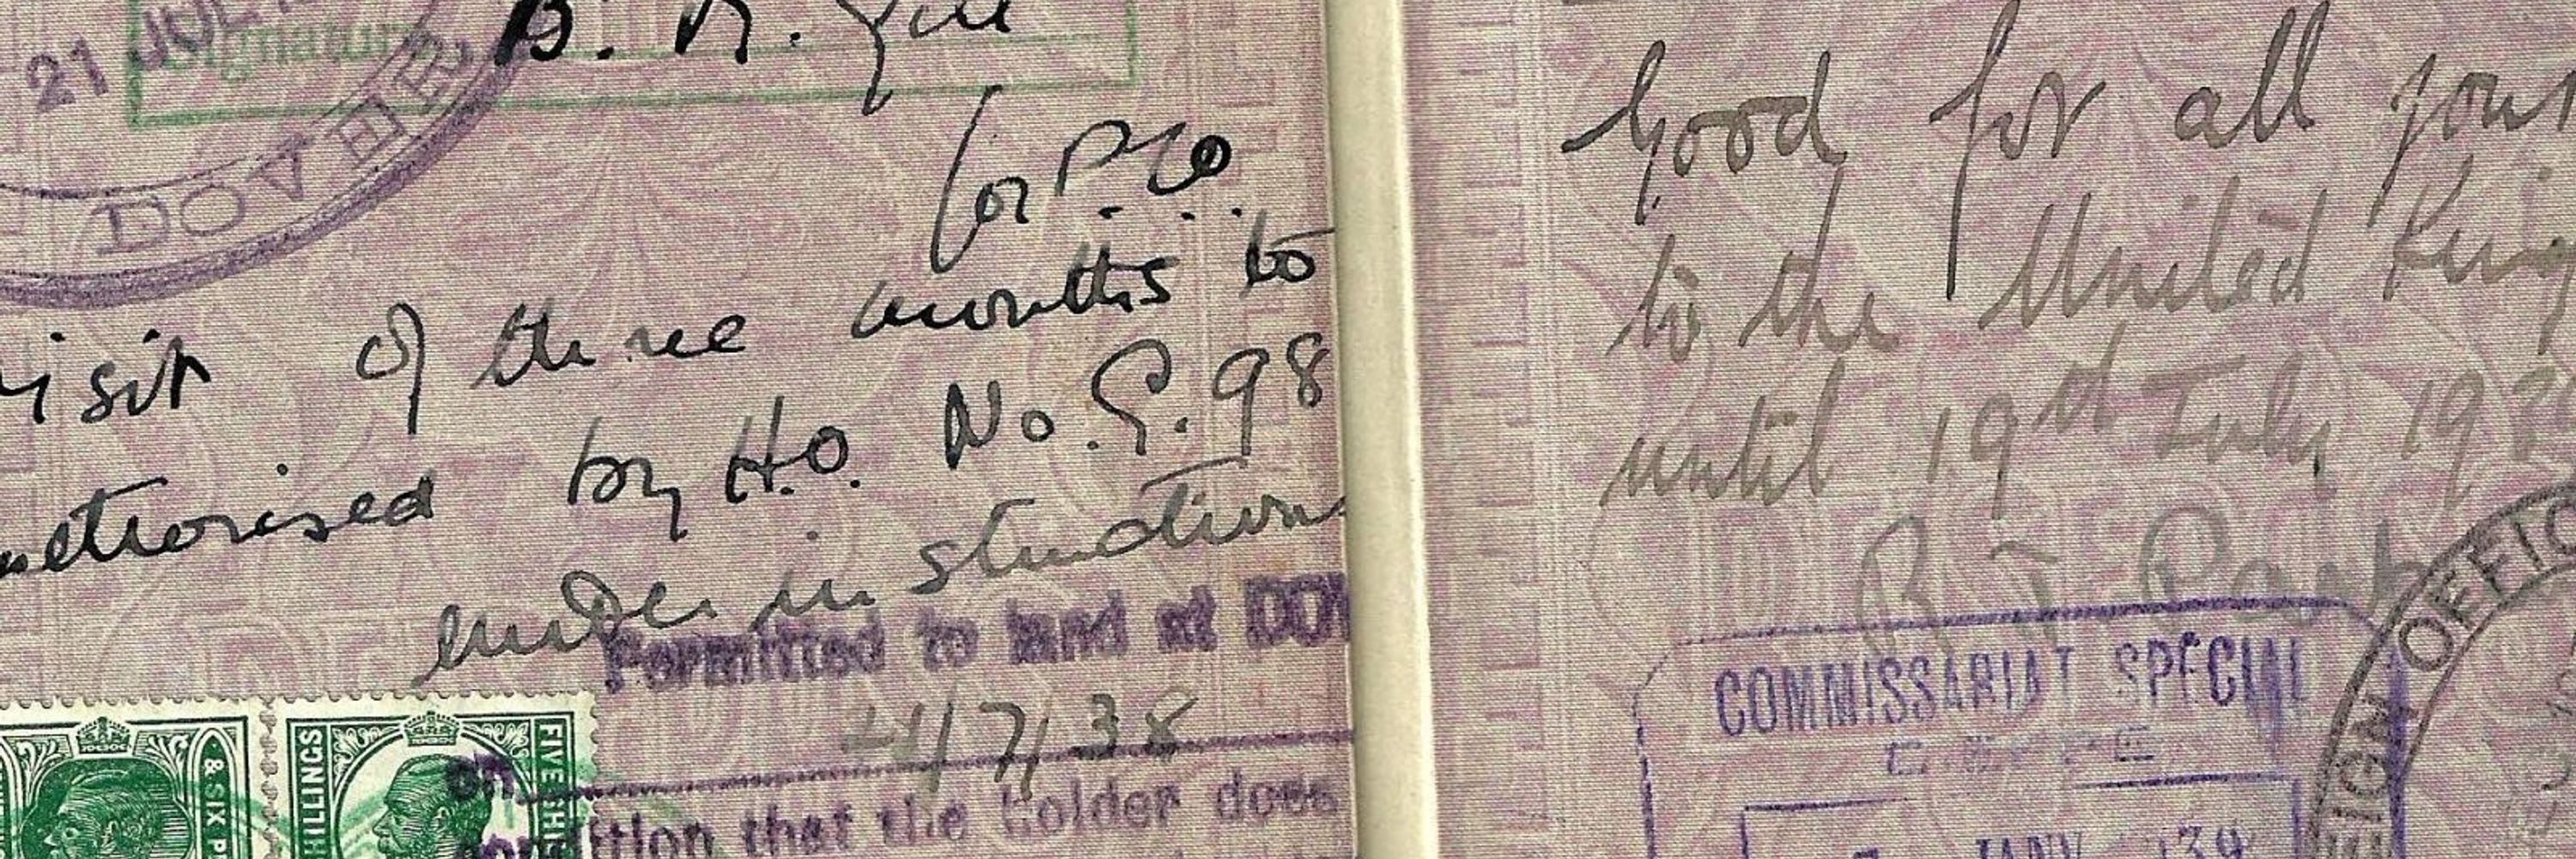 21 JUL
Signature
B. R. Gill
DOVER
for P.C.O.
visit of three months to
authorised by H.O. No. G. 98
under instructions
Permitted to land at DOV
-4/7/38
on
condition that the holder does
& SIX P
SHILLINGS
FIVE SHI
Good for all jour
to the United King
until 19th July 193
COMMISSARIAT SPECIAL
JANV 39
EIGN OFFIC